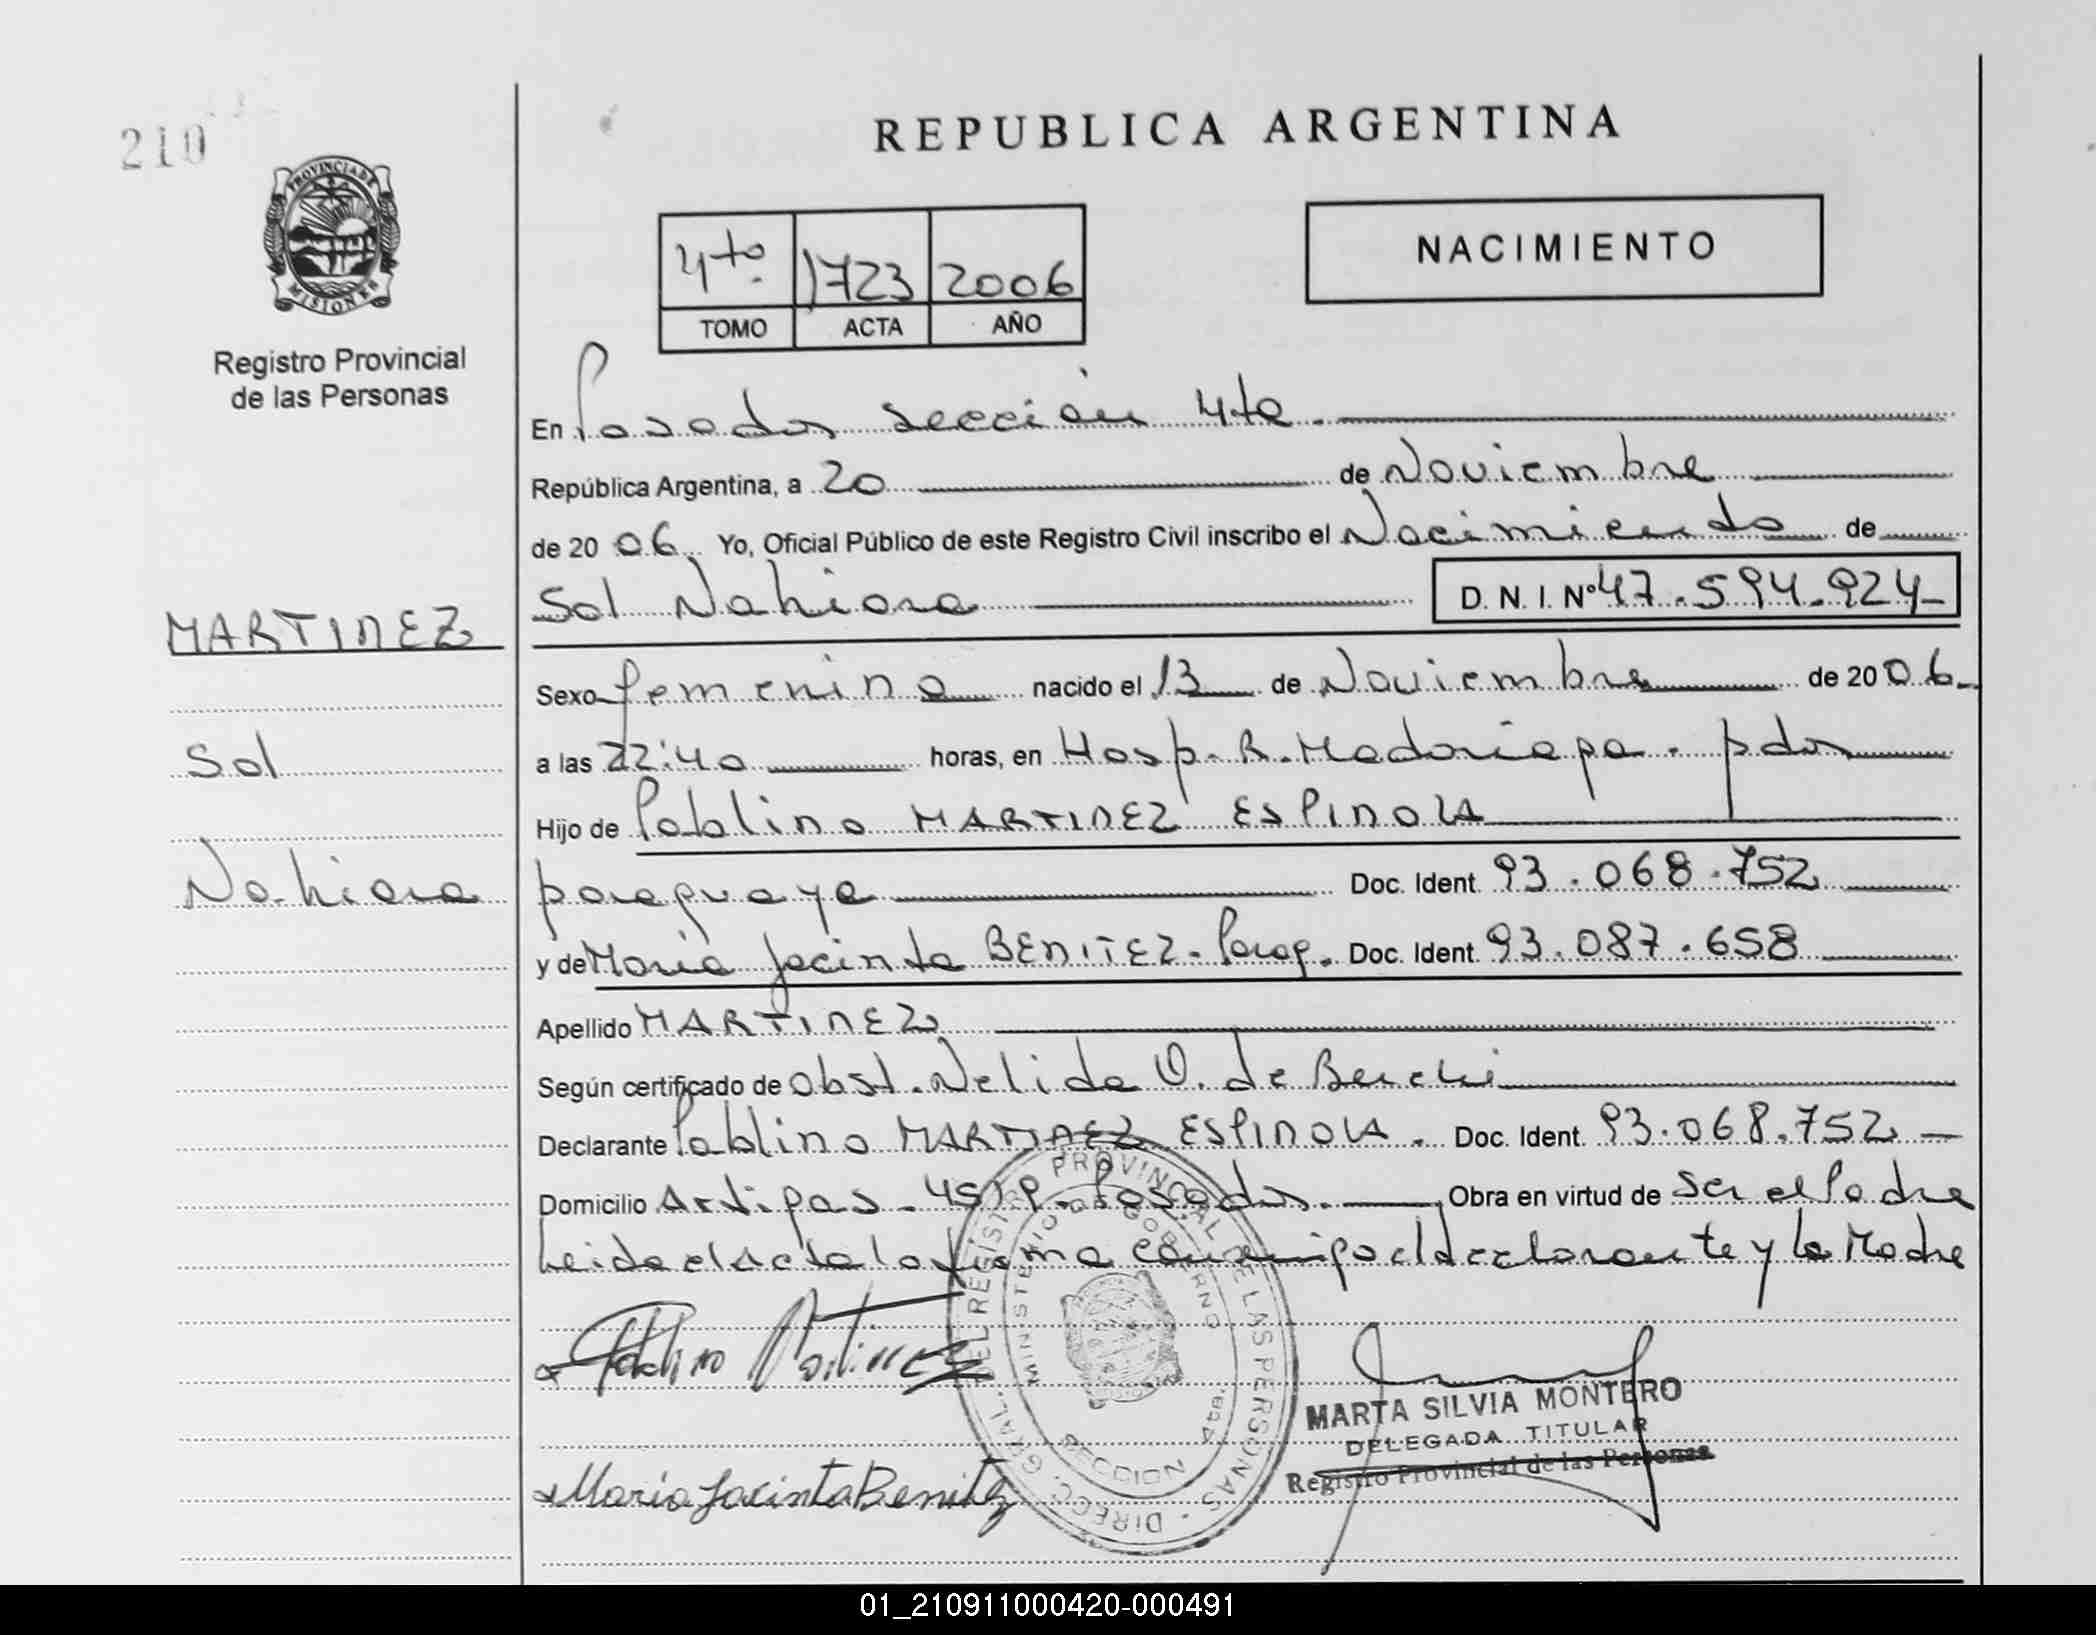 210
REPUBLICA ARGENTINA
PROVINCIA DE MISIONES
Registro Provincial
de las Personas
4to. 1723 2006
TOMO ACTA AÑO
NACIMIENTO
En Posadas sección 4ta.
República Argentina, a 20 de Noviembre
de 2006. Yo, Oficial Público de este Registro Civil inscribo el Nacimiento de
MARTINEZ
Sol Nahiara D. N. I. Nº 47.594.924
Sexo femenino nacido el 13 de Noviembre de 2006
Sol
a las 22:40 horas, en Hosp. R. Madariaga. Pdas
Hijo de Pablino MARTINEZ ESPINOLA
Nahiara
paraguaya Doc. Ident. 93.068.752
y de Maria Jacinta BENITEZ - Parag. Doc. Ident. 93.087.658
Apellido MARTINEZ
Según certificado de Obst. Nelida O. de
Declarante Pablino MARTINEZ ESPINOLA. Doc. Ident. 93.068.752
Domicilio Artigas - Posadas. Obra en virtud de ser el Padre
Leida el Acta la firma conmigo el declarante y la Madre
Pablino Martinez
Maria Jacinta Benitez
DIRECC. GRAL. DEL REGISTRO PROVINCIAL DE LAS PERSONAS
MINISTERIO DE GOBIERNO
SECCION 4ta.
MARTA SILVIA MONTERO
DELEGADA TITULAR
Registro Provincial de las Personas
01_210911000420-000491